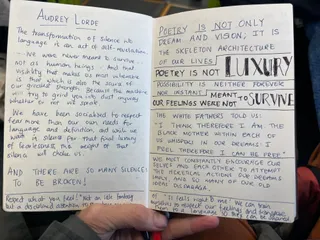 AUDREY LORDE
The transformation of silence into
language is an act of self-revelation.
- We were never meant to survive
not as human beings. And that
visibility that makes us most vulnerable
is that which is also the source of
our greatest strength. Because the machine
will try to grind you into dust anyway
whether or not we speak.
We have been socialised to respect
fear more than our own needs for
language and definition, and while we
wait in silence for that final luxury
of fearlessness the weight of that
silence will choke us.
AND THERE ARE SO MANY SILENCES
TO BE BROKEN!
Respect what you feel! not an idle fantasy
but a disciplined attention
POETRY IS NOT ONLY
DREAM AND VISION, IT IS
THE SKELETON ARCHITECTURE
OF OUR LIVES!
POETRY IS NOT LUXURY
POSSIBILITY IS NEITHER FOREVER
NOR INSTANT!
OUR FEELINGS WERE NOT MEANT TO SURVIVE
THE WHITE FATHERS TOLD US:
I THINK THEREFORE I AM. THE
BLACK MOTHER WITHIN EACH OF
US WHISPERS IN OUR DREAMS: I
FEEL THEREFORE I CAN BE FREE!
WE MUST CONSTANTLY ENCOURAGE OUR
SELVES AND EACH OTHER TO ATTEMPT
THE HERETICAL ACTIONS OUR DREAMS
IMPLY, AND SO MANY OF OUR OLD
IDEAS DISPARAGE.
"It feels right to me" We can train
ourselves to respect our feelings and transpose
them to a language so they can be shared